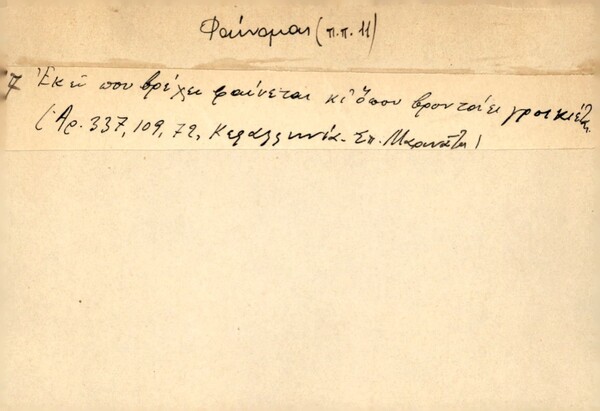 Φαίνομαι (π.π. 11)
Ἐκεῖ που βρέχει φαίνεται κι' ὅπου βροντάει γροικιέται.
(Ἀρ. 337, 109, 72, Κεφαλληνία. Σπ. Μαρινάτη)